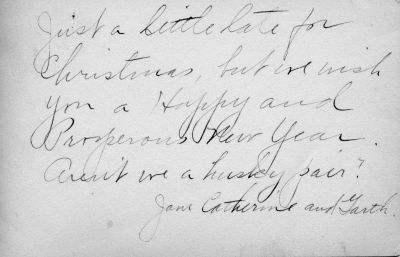 Just a little late for
Christmas, but we wish
you a Happy and
Prosperous New Year.
Aren't we a husky pair?
Jane Catherine and Garth.